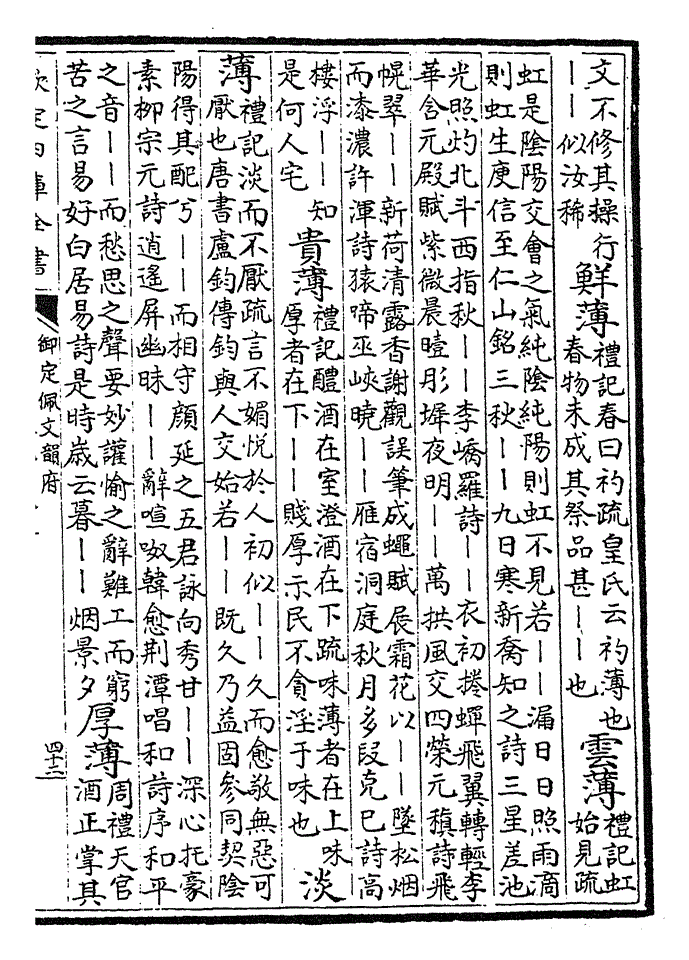 文不修其操行
——似汝稀
鮮薄
禮記春曰礿疏皇氏云礿薄也
春物未成其祭品甚——也
雲薄
禮記虹
始見疏
虹是陰陽交會之氣純陰純陽則虹不見若——漏日日照雨滴
則虹生庾信至仁山銘三秋——九日寒新喬知之詩三星差池
光照灼北斗西指秋——李嶠羅詩——衣初捲蟬飛翼轉輕李
華含元殿賦紫微晨曀彤墀夜明——萬拱風交四榮元稹詩飛
幌翠——新荷清露香謝觀誤筆成蠅賦展霜花以——墜松烟
而漆濃許渾詩猿啼巫峽曉——雁宿洞庭秋月多段克巳詩高
棲浮——知
是何人宅
貴薄
禮記醴酒在室澄酒在下疏味薄者在上味
厚者在下——賤厚示民不貪淫于味也
淡
薄
禮記淡而不厭疏言不媚悅於人初似——久而愈敬無惡可
厭也唐書盧鈞傳鈞與人交始若——既久乃益固參同契陰
陽得其配兮——而相守顏延之五君詠向秀甘——深心托豪
素柳宗元詩逍遙屏幽昧——辭喧呶韓愈荆潭唱和詩序和平
之音——而愁思之聲要妙讙愉之辭難工而窮
苦之言易好白居易詩是時歲云暮——烟景夕
厚薄
周禮天官
酒正掌其
欽定四庫全書
御定佩文韻府
四十二